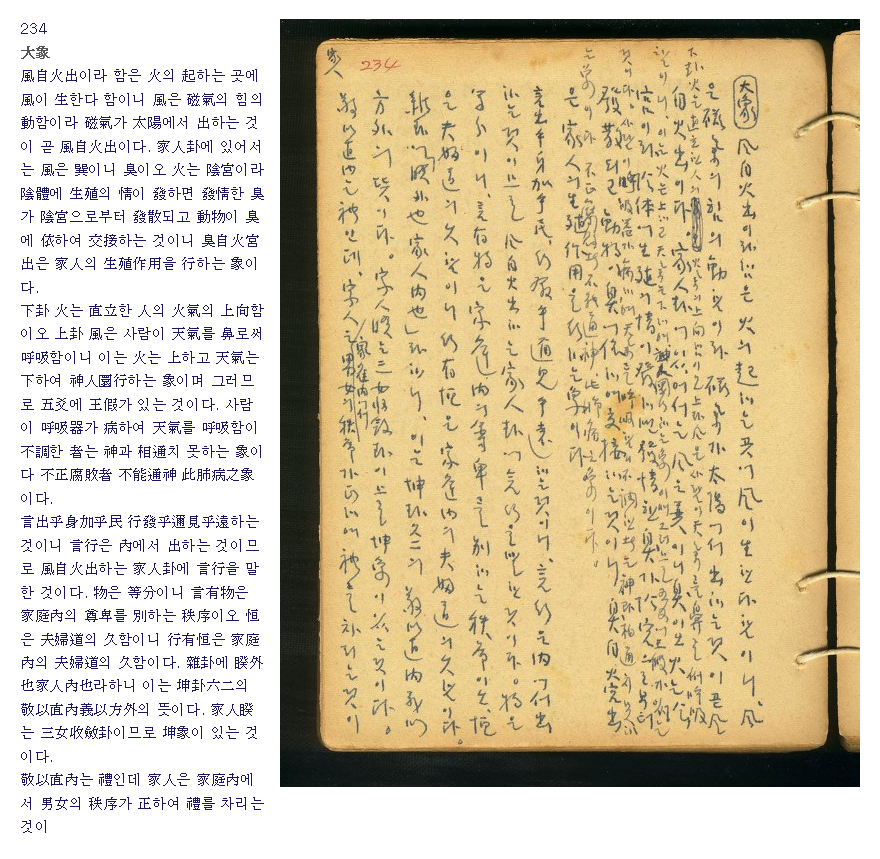 234
大象
風自火出이라 함은 火의 起하는 곳에
風이 生한다 함이니 風은 磁氣의 힘의
動함이라 磁氣가 太陽에서 出하는 것
이 곧 風自火出이다. 家人卦에 있어서
는 風은 巽이니 臭이오 火는 陰宮이라
陰體에 生殖의 情이 發하면 發情한 臭
가 陰宮으로부터 發散되고 動物이 臭
에 依하여 交接하는 것이니 臭自火宮
出은 家人의 生殖作用을 行하는 象이
다.
下卦 火는 直立한 人의 火氣의 上向함
이오 上卦 風은 사람이 天氣를 鼻로써
呼吸함이니 이는 火는 上하고 天氣는
下하여 神人圜行하는 象이며 그러므
로 五爻에 王假가 있는 것이다. 사람
이 呼吸器가 病하여 天氣를 呼吸함이
不調한 者는 神과 相通치 못하는 象이
다 不正腐敗者 不能通神 此肺病之象
이다.
言出乎身加乎民 行發乎邇見乎遠하는
것이니 言行은 內에서 出하는 것이므
로 風自火出하는 家人卦에 言行을 말
한 것이다. 物은 等分이니 言有物은
家庭內의 尊卑를 別하는 秩序이오 恒
은 夫婦道의 久함이니 行有恒은 家庭
內의 夫婦道의 久함이다. 雜卦에 睽外
也家人內也라하니 이는 坤卦六二의
敬以直內義以方外의 뜻이다. 家人睽
는 三女收斂卦이므로 坤象이 있는 것
이다.
敬以直內는 禮인데 家人은 家庭內에
서 男女의 秩序가 正하여 禮를 차리는
것이
家人
234
大象 風自火出이라 함은 火의 起하는 곳에 風이 生한다 함이니 風
은 磁氣의 힘의 動함이라 磁氣가 太陽에서 出하는 것이 곧 風
自火出이다. 家人卦에 있어서는 風은 巽이니 臭이오 火는 陰
宮이라 陰体에 生殖의 情이 發하면 發情한 臭가 陰宮으로부터
發散되고 動物이 臭에 依하여 交接하는 것이니 臭自火宮出
은 家人의 生殖作用을 行하는 象이다.
言出乎身加乎民 行發乎邇見乎遠하는 것이니 言行은 內에서 出
하는 것이므로 風自火出하는 家人卦에 言行을 말한 것이다. 物은
等分이니 言有物은 家庭內의 尊卑를 別하는 秩序이오 恒
은 夫婦道의 久함이니 行有恒은 家庭內의 夫婦道의 久함이다.
雜卦에 睽外也家人內也라하니 이는 坤卦六二의 敬以直內義以
方外의 뜻이다. 家人睽는 三女收斂卦이므로 坤象이 있는 것이다.
敬以直內는 禮인데 家人은 家庭內에서 男女의 秩序가 正하여 禮를 차리는 것이